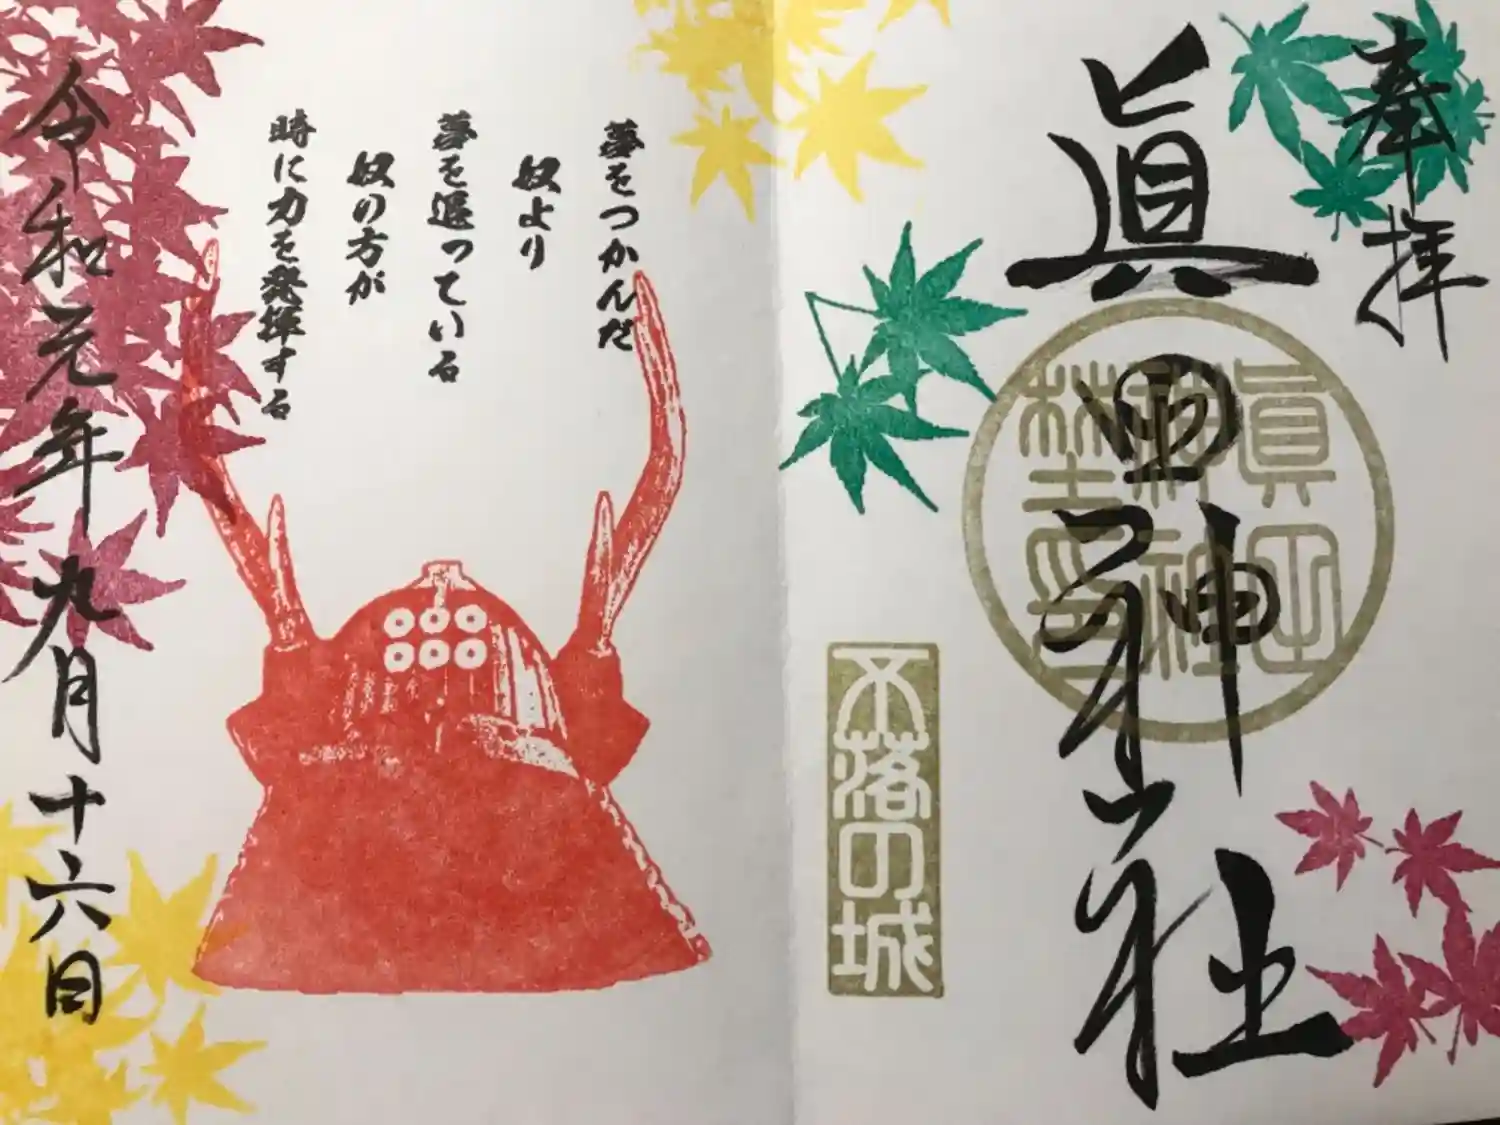 奉拝
眞田神社
眞田
神社
不落の城
夢をつかんだ
奴より
夢を追っている
奴の方が
時に力を発揮する
令和元年九月十六日